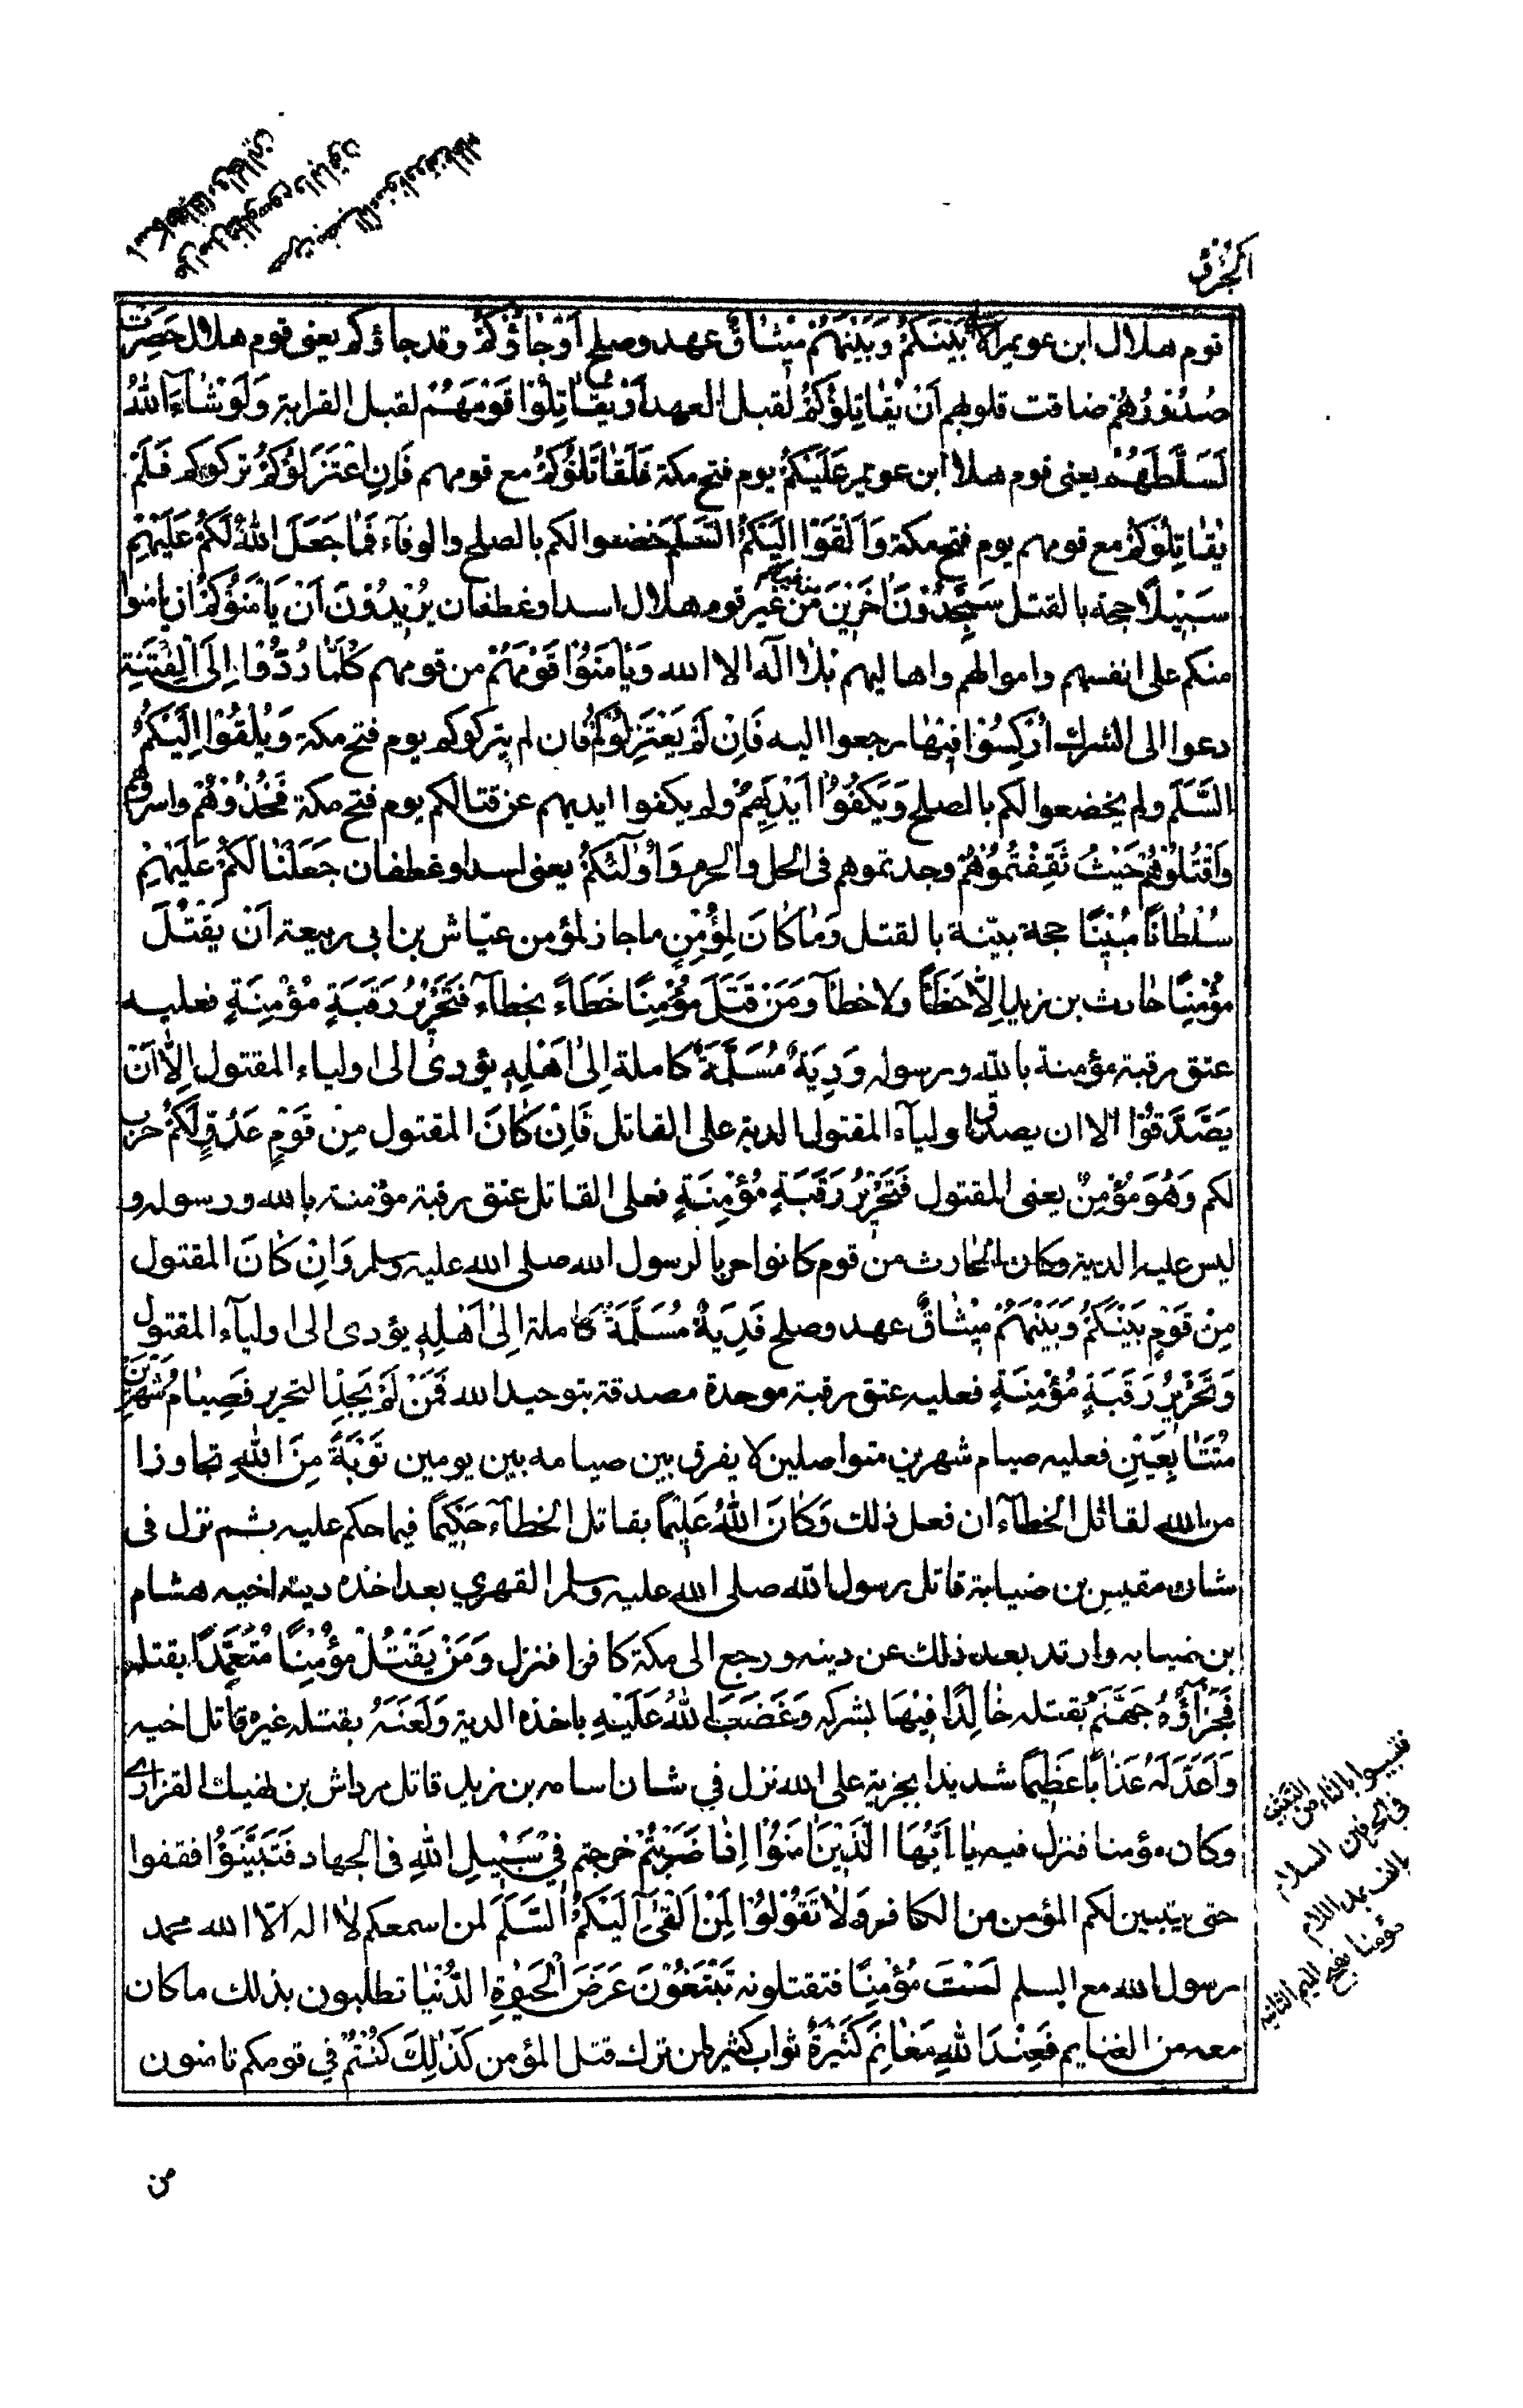 الجزؤ
قوم هلال ابن عويمر الا بَيْنَكُمْ وَبَيْنَهُمْ مِيْثَاقٌ عهد وصلح اَوْجَاؤُكُمْ وقد جاؤكم يعنى قوم هلال حَصِرَتْ
صُدُوْرُهُمْ ضاقت قلوبهم اَنْ يُقَاتِلُوْكُمْ لقبل العهد اَوْ يُقَاتِلُوْا قَوْمَهُمْ لقبل القرابة وَلَوْ شَاءَ اللهُ
لَسَلَّطَهُمْ يعنى قوم هلال ابن عويمر عَلَيْكُمْ يوم فتح مكة فَلَقَاتَلُوْكُمْ مع قومهم فَاِنِ اعْتَزَلُوْكُمْ تركوكم فَلَمْ
يُقَاتِلُوْكُمْ مع قومهم يوم فتح مكة وَاَلْقَوْا اِلَيْكُمُ السَّلَمَ خضعوا لكم بالصلح والوفآء فَمَا جَعَلَ اللهُ لَكُمْ عَلَيْهِمْ
سَبِيْلًا حجة بالقتل سَتَجِدُوْنَ اٰخَرِيْنَ من غير قوم هلال اسدا وغطفان يُرِيْدُوْنَ اَنْ يَاْمَنُوْكُمْ ان يامنوا
منكم على انفسهم واموالهم واهاليهم بلا اله الا الله وَيَاْمَنُوْا قَوْمَهُمْ من قومهم كُلَّمَا رُدُّوْا اِلَى الْفِتْنَةِ
دعوا الى الشرك اُرْكِسُوْا فِيْهَا رجعوا اليه فَاِنْ لَمْ يَعْتَزِلُوْكُمْ فان لم يتركوكم يوم فتح مكة وَيُلْقُوْا اِلَيْكُمُ
السَّلَمَ ولم يخضعوا لكم بالصلح وَيَكُفُّوْا اَيْدِيَهُمْ ولم يكفوا ايديهم عن قتالكم يوم فتح مكة فَخُذُوْهُمْ واسروهم
وَاقْتُلُوْهُمْ حَيْثُ ثَقِفْتُمُوْهُمْ وجدتموهم فى الحل والحرم وَاُولٰٓئِكُمْ يعنى اسدا وغطفان جَعَلْنَا لَكُمْ عَلَيْهِمْ
سُلْطَانًا مُبِيْنًا حجة بيّنة بالقتل وَمَا كَانَ لِمُؤْمِنٍ ما جاز لمؤمن عيّاش بن ابى ربيعة اَنْ يَقْتُلَ
مُؤْمِنًا حارث بن زيد اِلَّا خَطَأً ولا خطأ وَمَنْ قَتَلَ مُؤْمِنًا خَطَاءً بخطآء فَتَحْرِيْرُ رَقَبَةٍ مُؤْمِنَةٍ فعليه
عتق رقبة مؤمنة بالله ورسوله وَدِيَةٌ مُسَلَّمَةٌ كاملة اِلٰى اَهْلِهِ يؤدى الى اولياء المقتول اِلَّا اَنْ
يَصَّدَّقُوْا الا ان يصدقوا اوليآء المقتول الدية على القاتل فَاِنْ كَانَ المقتول مِنْ قَوْمٍ عَدُوٍّ لَكُمْ حرب
لكم وَهُوَ مُؤْمِنٌ يعنى المقتول فَتَحْرِيْرُ رَقَبَةٍ مُؤْمِنَةٍ فعلى القاتل عتق رقبة مؤمنة بالله ورسوله و
ليس عليه الدية وكان الحارث من قوم كانوا حربا لرسول الله صلى الله عليه وسلم وَاِنْ كَانَ المقتول
مِنْ قَوْمٍ بَيْنَكُمْ وَبَيْنَهُمْ مِيْثَاقٌ عهد وصلح فَدِيَةٌ مُسَلَّمَةٌ كاملة اِلٰى اَهْلِهِ يؤدى الى اوليآء المقتول
وَتَحْرِيْرُ رَقَبَةٍ مُؤْمِنَةٍ فعليه عتق رقبة موحدة مصدقة بتوحيد الله فَمَنْ لَمْ يَجِدْ التحرير فَصِيَامُ شَهْرَيْنِ
مُتَتَابِعَيْنِ فعليه صيام شهرين متواصلين لا يفرق بين صيامه بين يومين تَوْبَةً مِنَ اللهِ تجاوزا
من الله لقاتل الخطآء ان فعل ذلك وَكَانَ اللهُ عَلِيْمًا بقاتل الخطآء حَكِيْمًا فيما حكم عليه ثم نزل فى
شان مقيس بن ضبابة قاتل رسول الله صلى الله عليه وسلم القهري بعد اخذه دية اخيه هشام
بن ضبابه وارتد بعد ذلك عن دينه ورجع الى مكة كافرا فنزل وَمَنْ يَقْتُلْ مُؤْمِنًا مُتَعَمِّدًا بقتله
فَجَزَآؤُهُ جَهَنَّمُ بقتله خَالِدًا فِيْهَا بشركه وَغَضِبَ اللهُ عَلَيْهِ باخذه الدية وَلَعَنَهُ بقتله غير قاتل اخيه
وَاَعَدَّ لَهُ عَذَابًا عَظِيْمًا شديدا بجزية على الله نزل في شان اسامه بن زيد قاتل مرداش بن نهيك القزارى
وكان مؤمنا فنزل فيه يَا اَيُّهَا الَّذِيْنَ اٰمَنُوْا اِذَا ضَرَبْتُمْ خرجتم فِيْ سَبِيْلِ اللهِ فى الجهاد فَتَبَيَّنُوْا فقفوا
حتى يتبين لكم المؤمن من الكافر وَلَا تَقُوْلُوْا لِمَنْ اَلْقٰى اِلَيْكُمُ السَّلَمَ لمن اسمعكم لا اله الّا الله محمد
رسول الله مع السلم لَسْتَ مُؤْمِنًا فتقتلونه تَبْتَغُوْنَ عَرَضَ الْحَيٰوةِ الدُّنْيَا تطلبون بذلك ما كان
معه من الغنايم فَعِنْدَ اللهِ مَغَانِمُ كَثِيْرَةٌ ثواب كثير لمن ترك قتل المؤمن كَذٰلِكَ كُنْتُمْ في قومكم تامنون
فتبيوا بالثاء من التثبت
فى الحرفين السلام
بالف بعد اللام
مؤمنا بفتح الميم الثانية
من